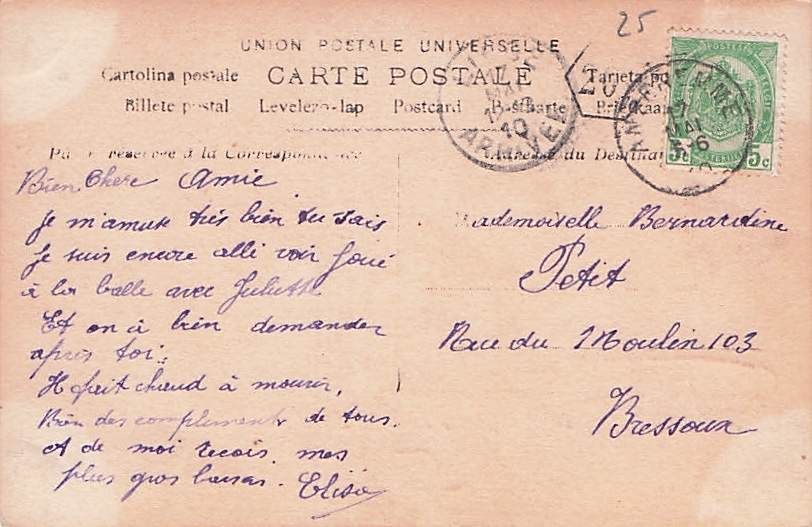 25
UNION POSTALE UNIVERSELLE
Cartolina postale CARTE POSTALE Tarjeta
Billete postal Levelezo-lap Postcard
réservée à la Correspondance
Adresse du
ARRIVÉE
10
17
MAI
5c 5c
Bien Chere Amie
Je m'amuse très bien tu sais
Je suis encore allé voir Joué
à la balle avec Juliette
Et on à bien demander
apres toi.
Il fait chaud à mourir,
Bien des compliments de tous.
et de moi recois mes
plus gros baisers. Elisa
Mademoiselle Bernardine
Petit
Rue du Moulin 103
Bressoux